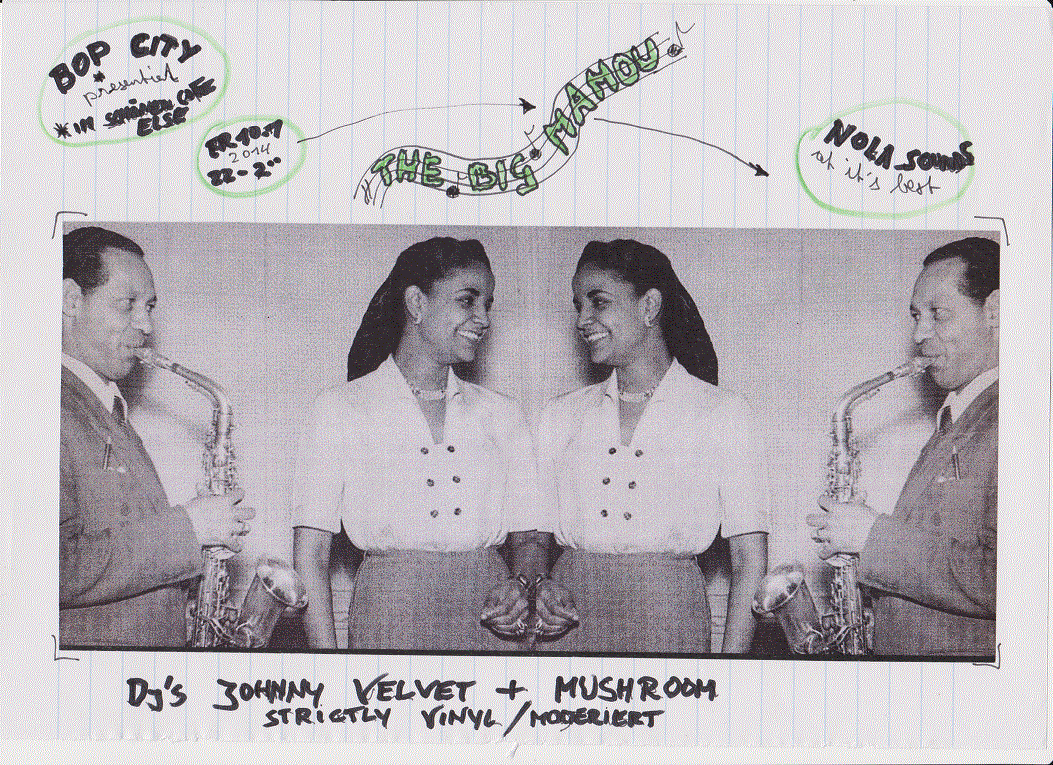 BOP CITY
* presentiert
* IM SCHÖNEN CAFE
ELSE
FR 10.1
2014
22 - 2°°
THE BIG MAMOU
NOLA SOUNDS
at it's best
Dj's JOHNNY VELVET + MUSHROOM
STRICTLY VINYL / MODERIERT